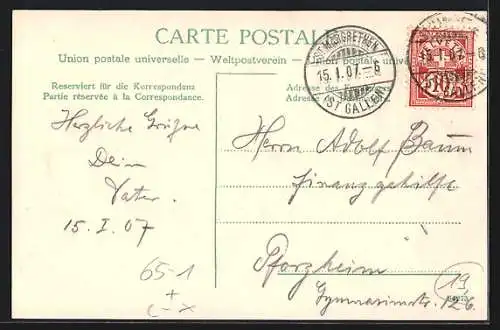 CARTE POSTALE
Union postale universelle. — Weltpostverein. — Union postale univers
Reserviert für die Korrespondenz
Partie réservée à la Correspondance.
Adresse des
Adresse du
ST. MARGRETHEN
15. I. 07. - 6
(ST. GALLEN)
HELVETIA
10
15. I. 07. - 6
Herzliche Grüsse
Dein
Vater.
15. I. 07
Herrn Adolf Baum
Finanzgehilfe
Pforzheim
Gymnasiumstr. 126.
65-1
+
19